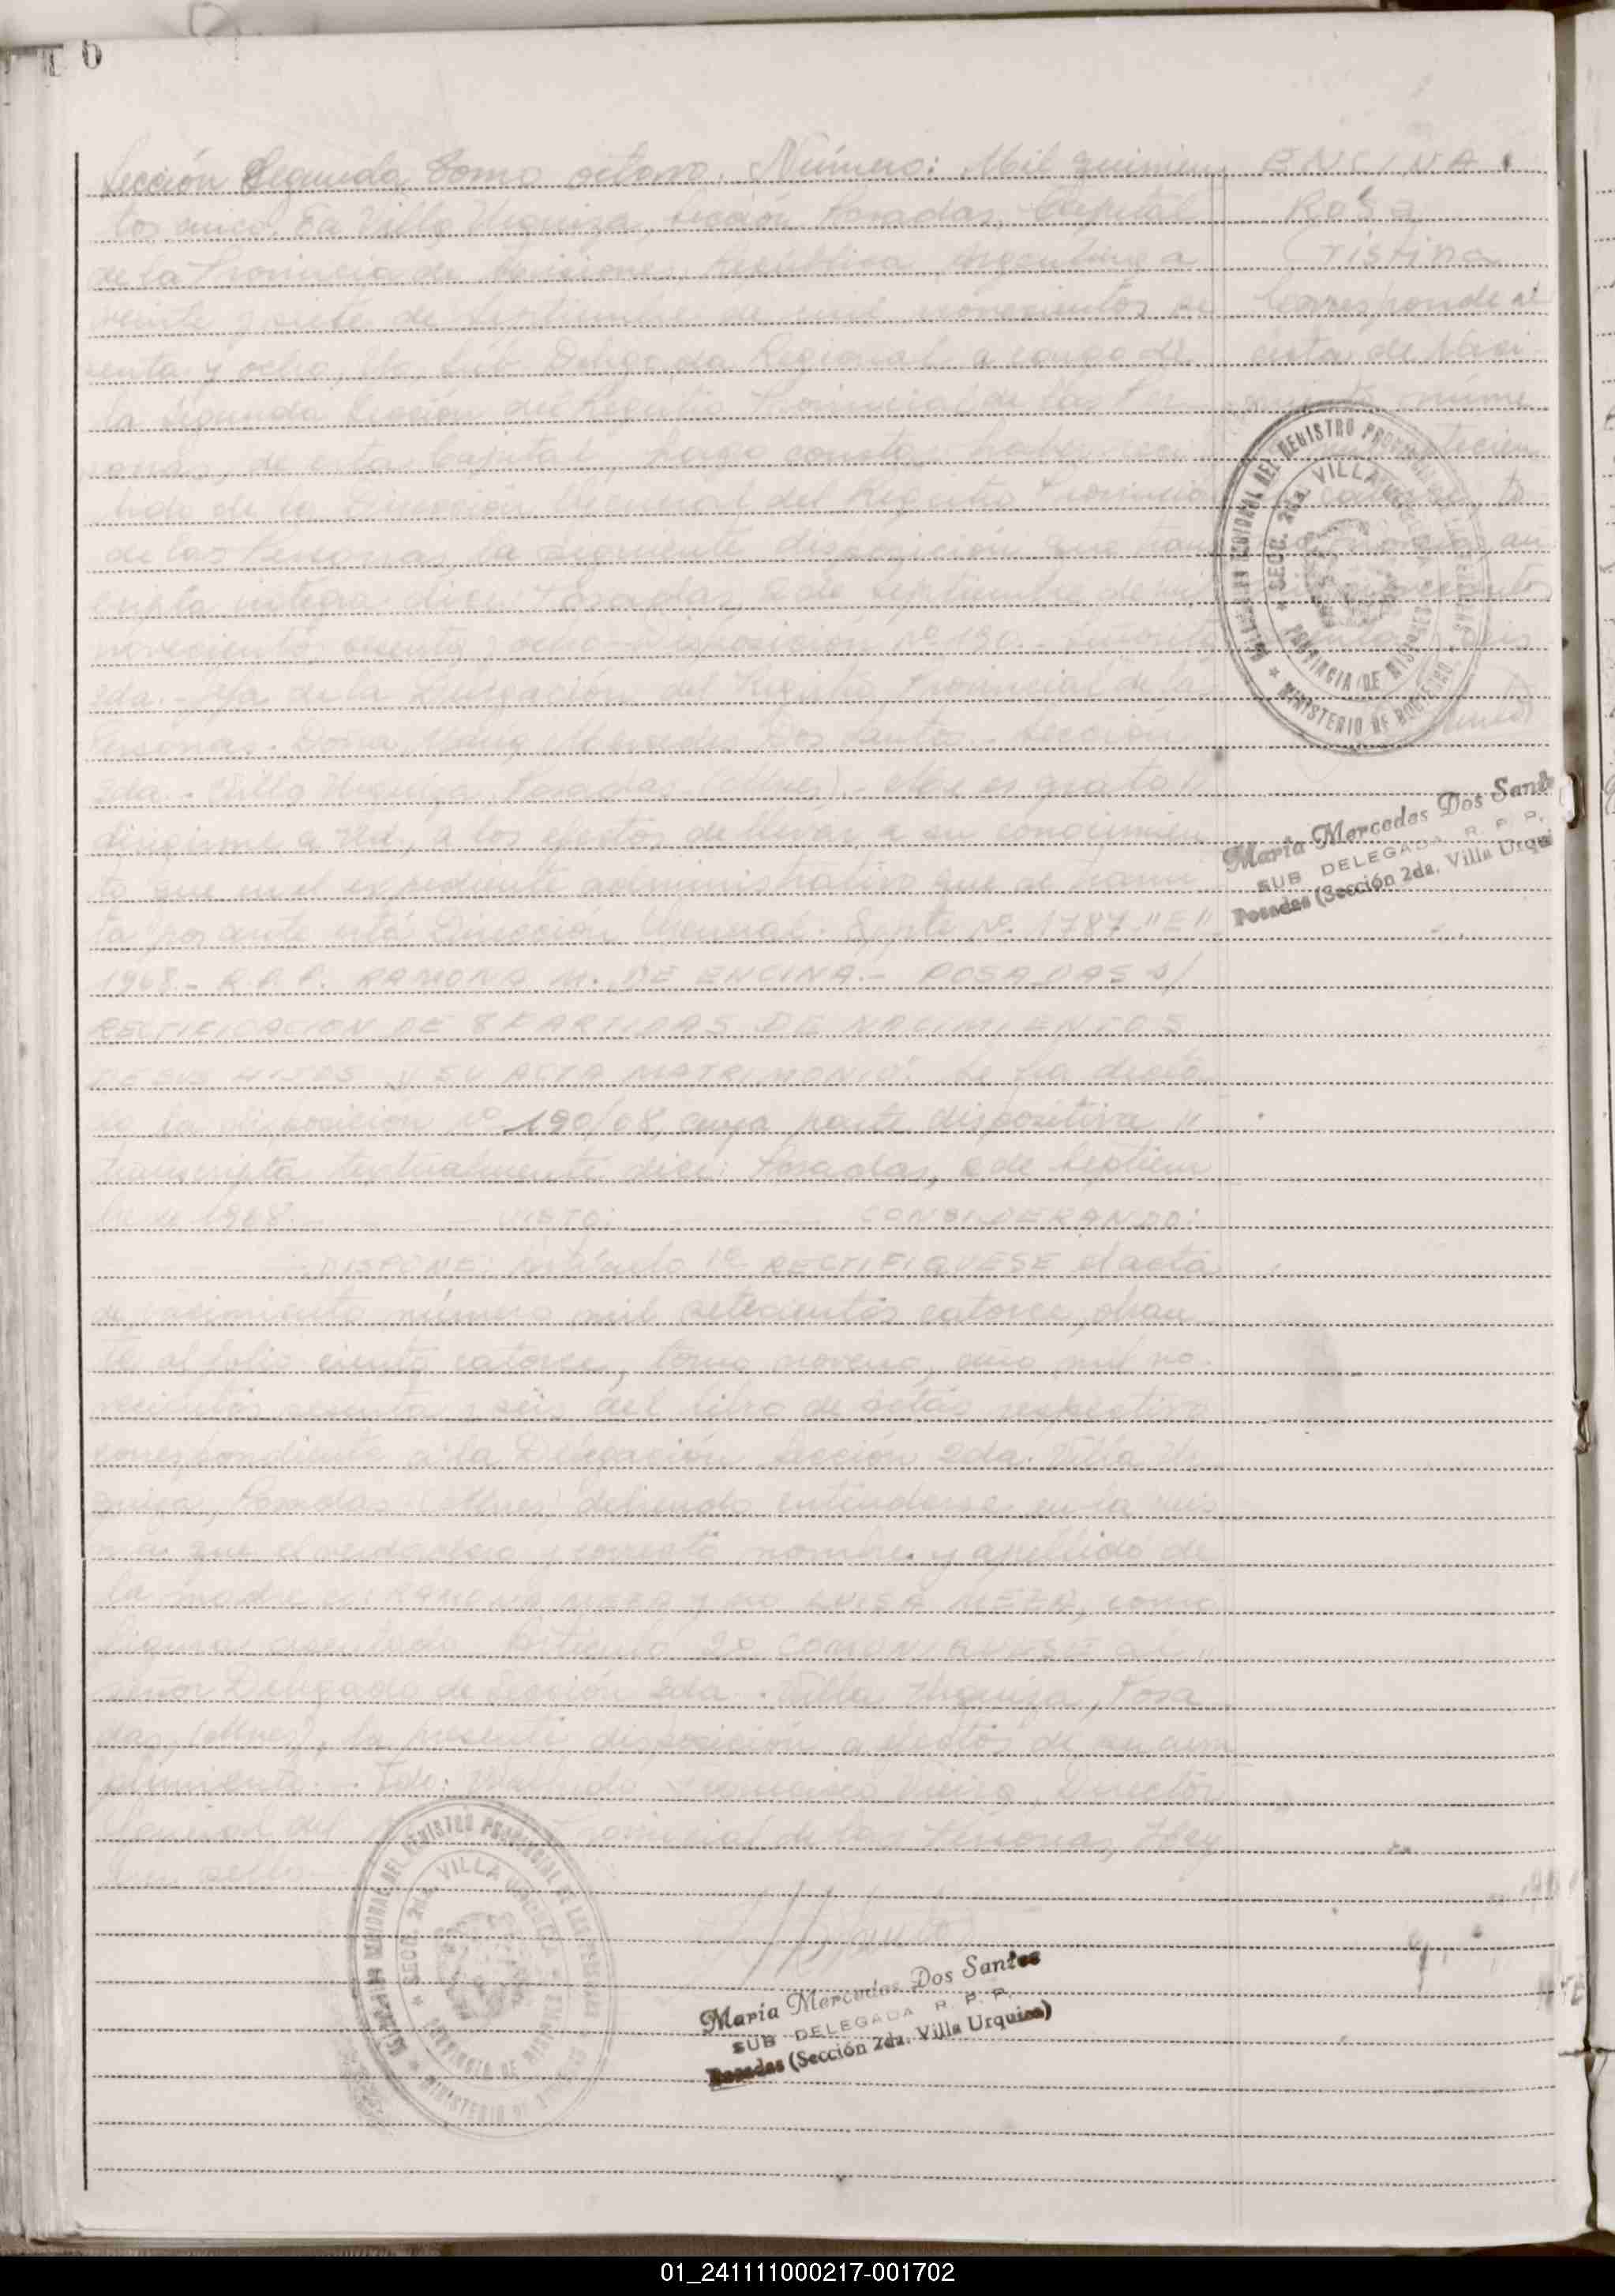 Sección Segunda Tomo octavo. Número: Mil quinien
tos cinco. En Villa Urquiza, Sección Posadas, Capital
de la Provincia de Misiones, República Argentina a
veinte y siete de Septiembre de mil novecientos se
senta y ocho, Yo, Sub Delegada Regional a cargo de
la Segunda Sección del Registro Provincial de las Per
sonas, de esta Capital, hago constar haber reci
bido de la Dirección General del Registro Provincial
de las Personas, la siguiente disposición que trans
cripta íntegra dice: Posadas, 2 de Septiembre de mil
novecientos sesenta y ocho - Disposición Nº 190.- Señorita
Jefa de la Delegación del Registro Provincial de las
Personas. Doña María Mercedes Dos Santos - Sección
2da. - Villa Urquiza, Posadas (Mnes) - Me es grato
dirigirme a Ud., a los efectos de llevar a su conocimien
to que en el expediente administrativo que se trami
ta por ante esta Dirección General. Expte Nº 1787-"E"
1968.- R.P.P. RAMONA M. DE ENCINA.- POSADAS s/
RECTIFICACION DE 8 PARTIDAS DE NACIMIENTOS
DE SUS HIJOS Y SU ACTA MATRIMONIO: Se ha dicta
do la disposición Nº 190/68, cuya parte dispositiva
transcripta textualmente dice: Posadas, 2 de Septiem
bre de 1968. VISTO: CONSIDERANDO:
DISPONE: Artículo 1º RECTIFIQUESE el acta
de nacimiento número mil setecientos catorce, obran
te al folio ciento catorce, tomo noveno, año mil no
vecientos sesenta y seis del libro de actas respectivo
correspondiente a la Delegación Sección 2da. Villa Ur
quiza, Posadas (Mnes) debiendo entenderse en la mis
ma que el verdadero y correcto nombre y apellido de
la madre es: RAMONA MEZA y no LUISA MEZA, como
figura asentado. Artículo 2º COMUNIQUESE al
señor Delegado de Sección 2da. Villa Urquiza, Posa
das, (Mnes), la presente disposición a efectos de su cum
plimiento. - Fdo: Francisco Vieira, Director
General del Provincial de las Personas, Hay
un sello
ENCINA,
Rosa
Cristina
Corresponde al
acta de Naci
miento núme
DELEGACION REGIONAL DEL REGISTRO PROVINCIAL DE LAS PERSONAS
SECC. 2da. VILLA URQUIZA
PROVINCIA DE MISIONES
MINISTERIO DE GOBIERNO
María Mercedes Dos Sant
SUB DELEGADA R. P. P.
Posadas (Sección 2da. Villa Urqui
DELEGACION REGIONAL DEL REGISTRO PROVINCIAL DE LAS PERSONAS
SECC. 2da. VILLA URQUIZA
PROVINCIA DE MISIONES
MINISTERIO DE GOBIERNO
María Mercedes Dos Santos
SUB DELEGADA R. P. P.
Posadas (Sección 2da. Villa Urquiza)
01_241111000217-001702